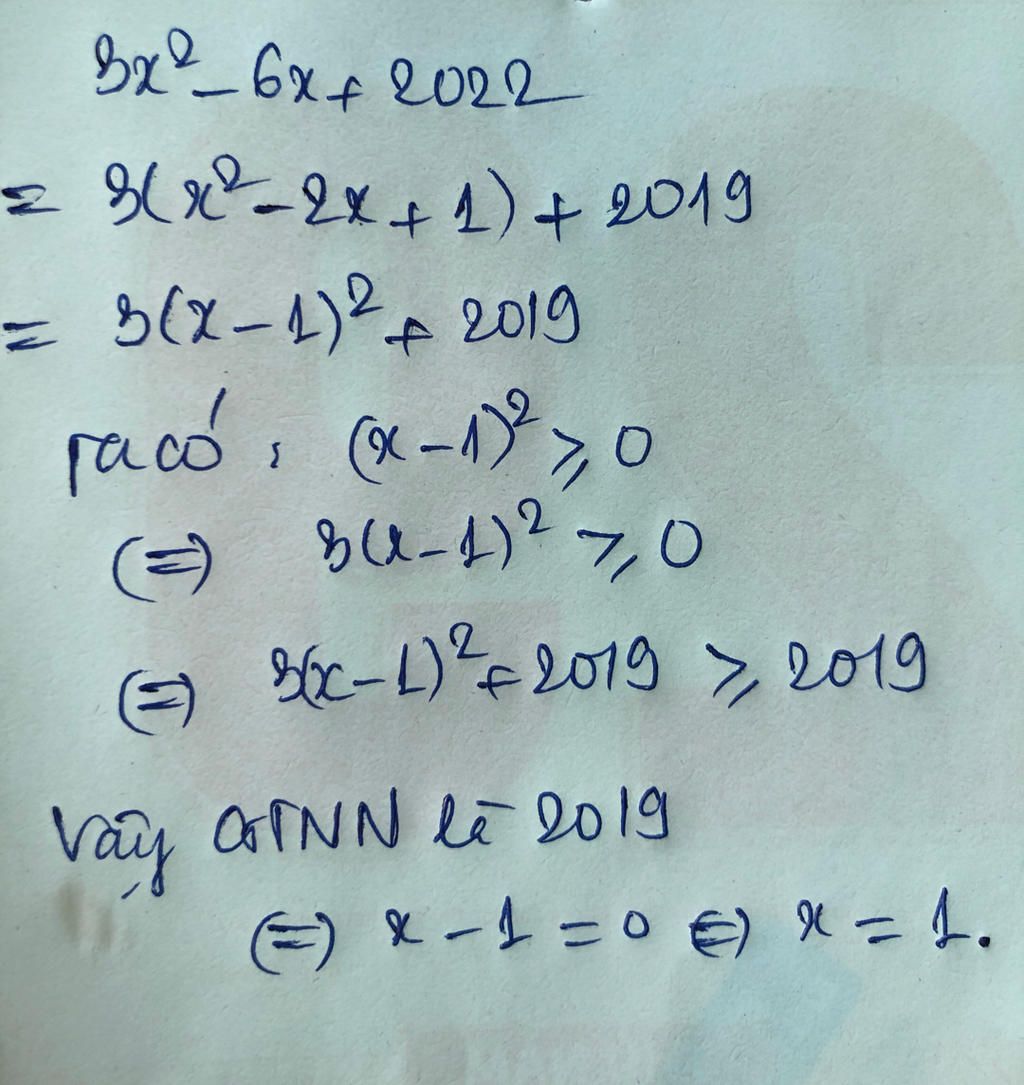 3x² - 6x + 2022
= 3(x² - 2x + 1) + 2019
= 3(x - 1)² + 2019
Ta có: (x - 1)² ≥ 0
(=) 3(x - 1)² ≥ 0
(=) 3(x - 1)² + 2019 ≥ 2019
Vậy GTNN là 2019
(=) x - 1 = 0 (=) x = 1.